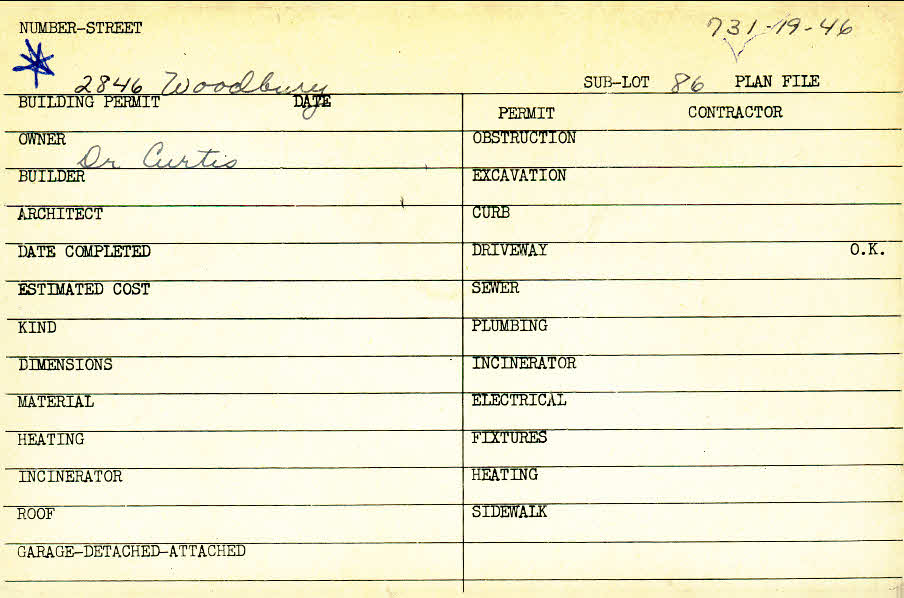 NUMBER-STREET 731-19-46
2846 Woodbury SUB-LOT 86 PLAN FILE
BUILDING PERMIT DATE PERMIT CONTRACTOR
OWNER Dr Curtis OBSTRUCTION
BUILDER EXCAVATION
ARCHITECT CURB
DATE COMPLETED DRIVEWAY O.K.
ESTIMATED COST SEWER
KIND PLUMBING
DIMENSIONS INCINERATOR
MATERIAL ELECTRICAL
HEATING FIXTURES
INCINERATOR HEATING
ROOF SIDEWALK
GARAGE-DETACHED-ATTACHED